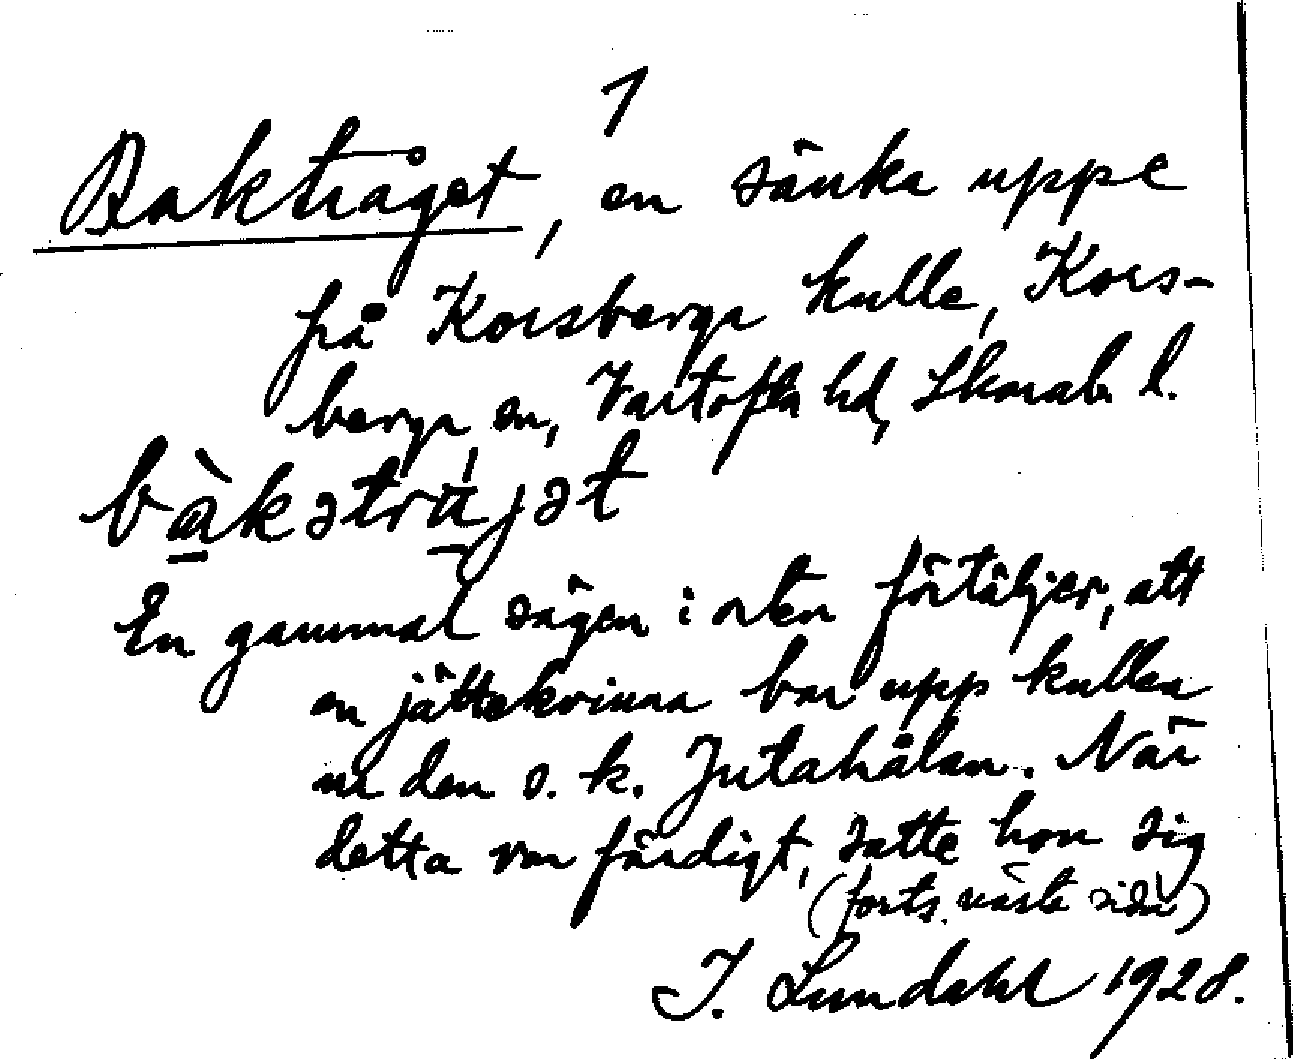 1
Baktråget, en sänka uppe
på Korsberga kulle, Kors-
berga sn, Vartofta hd, Skarab. l.
bàkətrá̱jət
En gammal sägen i orten förtäljer, att
en jättekvinna bar upp kullen
ur den s.k. Jutahålan. När
detta var färdigt, satte hon sig
(forts. näste sida)
I. Lundahl 1928.